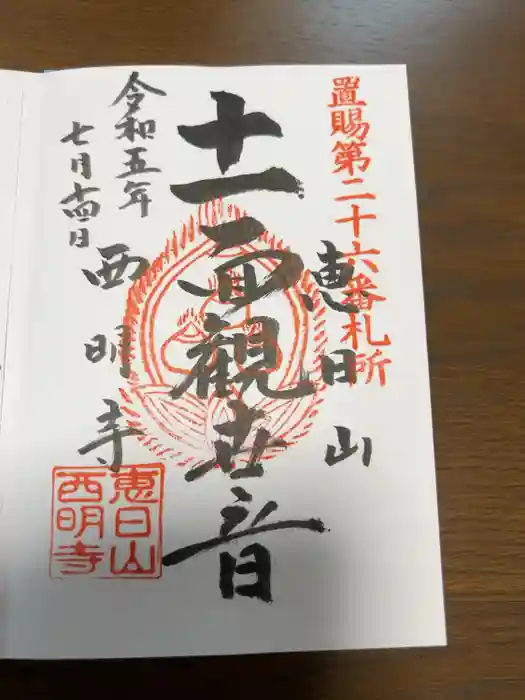 置賜第二十六番札所
恵日山
十一面觀世音
西明寺
令和五年
七月十四日
恵日山
西明寺